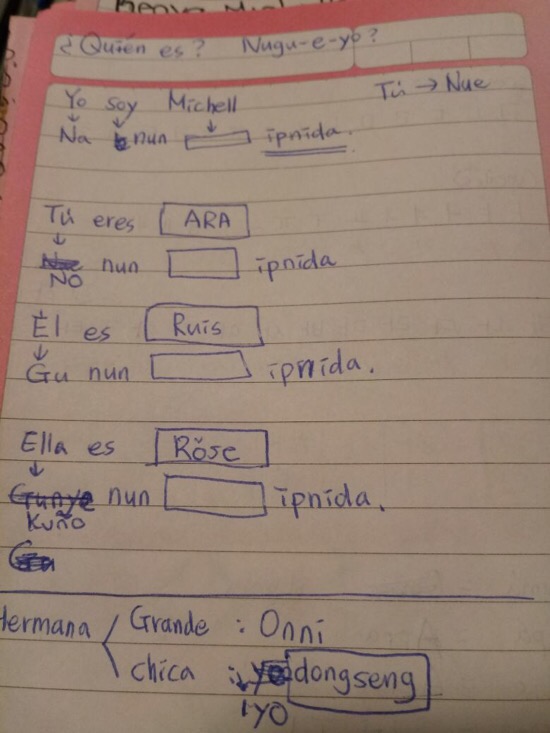 ¿Quién es? Nugu-e-yo?
Tú → Nue
Yo soy Michell
Na nun ipnida.
Tú eres ARA
NO nun ipnida
Él es Ruis
Gu nun ipnida.
Ella es Rŏse
Gunye nun ipnida.
Kuño
Hermana Grande : Onni
chica : dongseng
yo